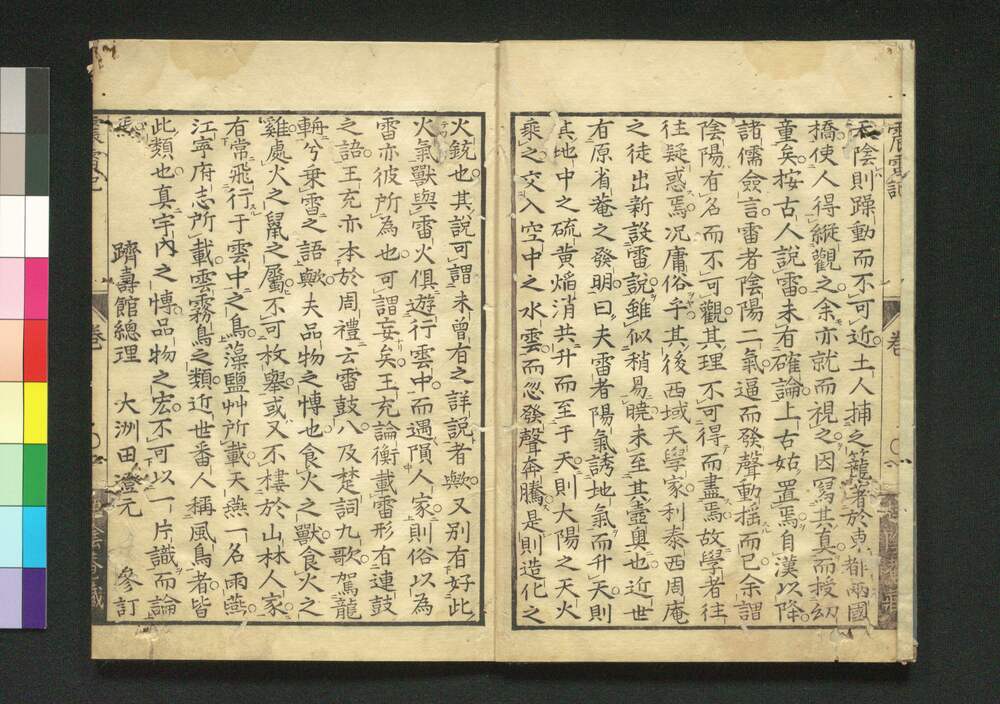 震雷記
天陰則躁動而不可近土人捕之籠畜於東都兩國
橋使人得縱觀之余亦就而視之因寫其真而授幼
童矣按古人說雷未有確論上古姑置焉自漢以降
諸儒僉言雷者陰陽二氣逼而發聲動搖而已余謂
陰陽有名而不可觀其理不可得而盡焉故學者往
往疑惑焉況庸俗乎其後西域天學家利泰西周庵
之徒出新設雷說雖似稍易曉未至其壼奧也近世
有原省菴之發明曰夫雷者陽氣誘地氣而升天則
其地中之硫黄焔消共升而至于天則大陽之天火
乘之交入空中之水雲而忽發聲奔騰是則造化之
火銃也其說可謂未曾有之詳說者歟又別有好此
火氣獸與雷火俱遊行雲中而遇隕人家則俗以為
雷亦彼所為也可謂妄矣王充論衡載雷形有連鼓
之語王充亦本於周禮云雷鼓八及楚詞九歌駕龍
輈兮乗雷之語歟夫品物之愽也食火之獸食火之
雞處火之鼠之屬不可枚舉或又不棲於山林人家
有常飛行于雲中之鳥藻鹽艸所載天燕一名雨燕
江寧府志所載雲霧鳥之類近世番人稱風鳥者皆
此類也真宇內之愽品物之宏不可以一片識而論
焉
躋壽館總理 大洲田澄元 參訂